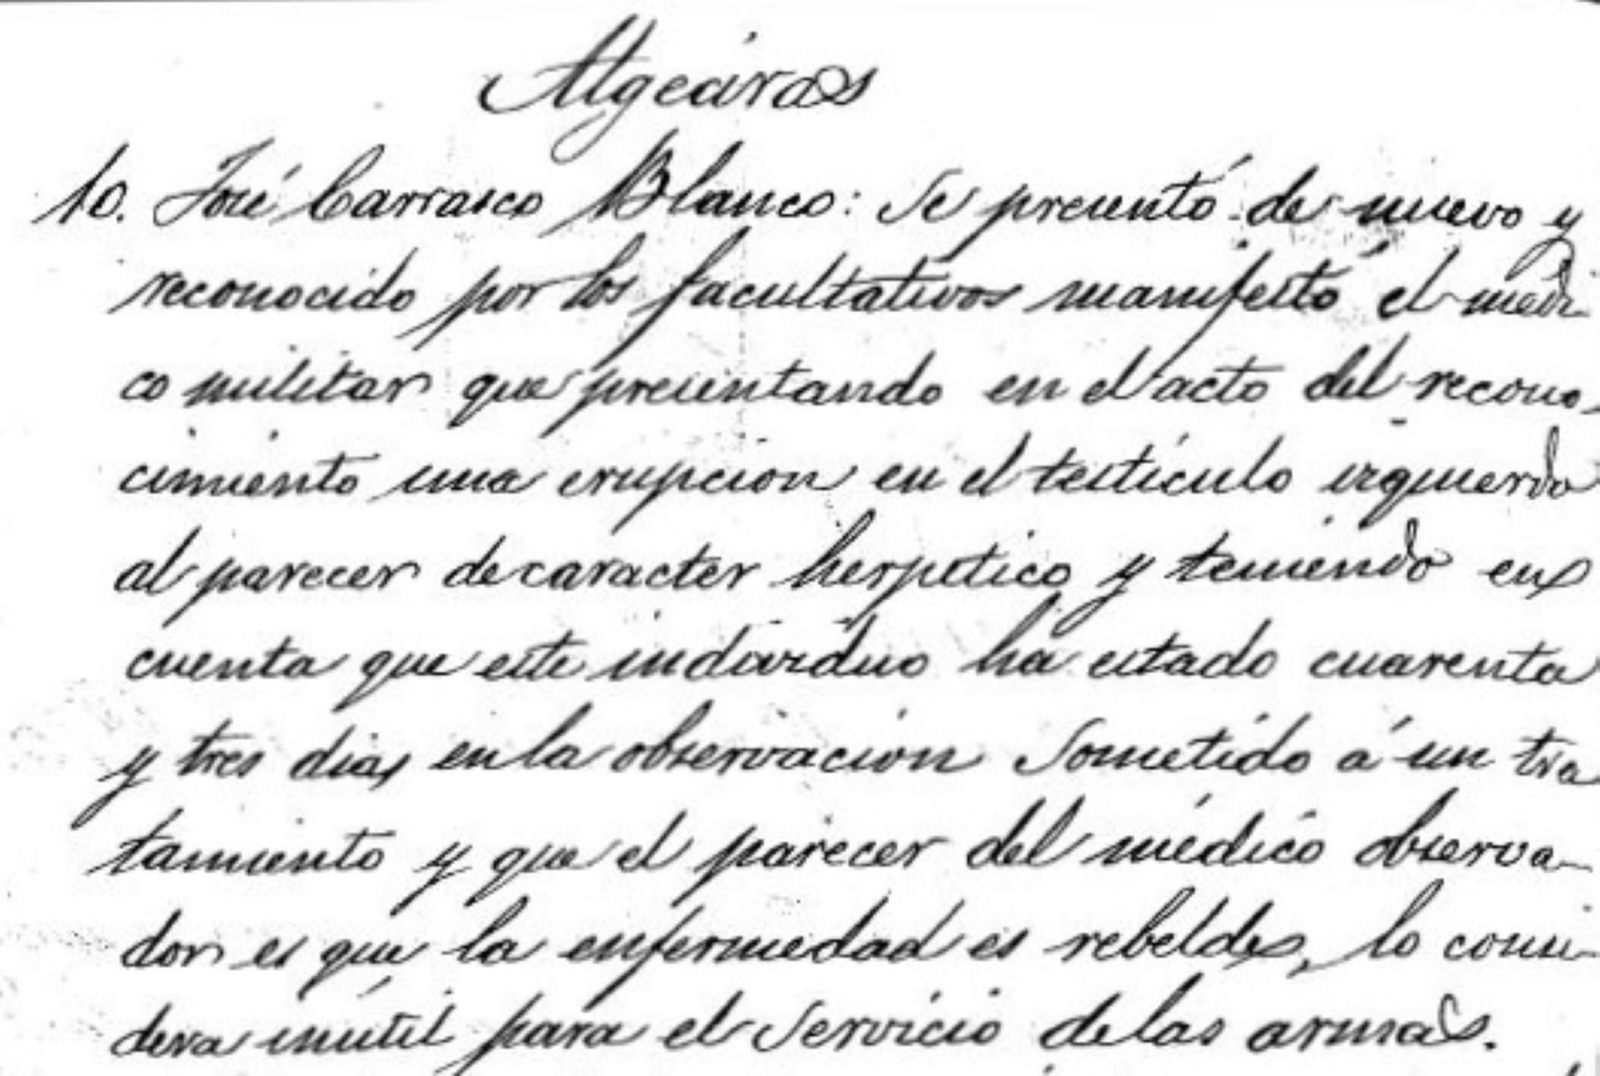 Algeciras
10. José Carrasco Blanco: Se presentó de nuevo y
reconocido por los facultativos manifestó el médi
co militar que presentando en el acto del recono-
cimiento una erupcion en el testículo izquierdo
al parecer de caracter herpetico y teniendo en
cuenta que este individuo ha estado cuarenta
y tres dias en la observacion sometido á un tra
tamiento y que el parecer del médico observa-
dor es que la enfermedad es rebelde, lo consi-
dera inútil para el servicio de las armas.